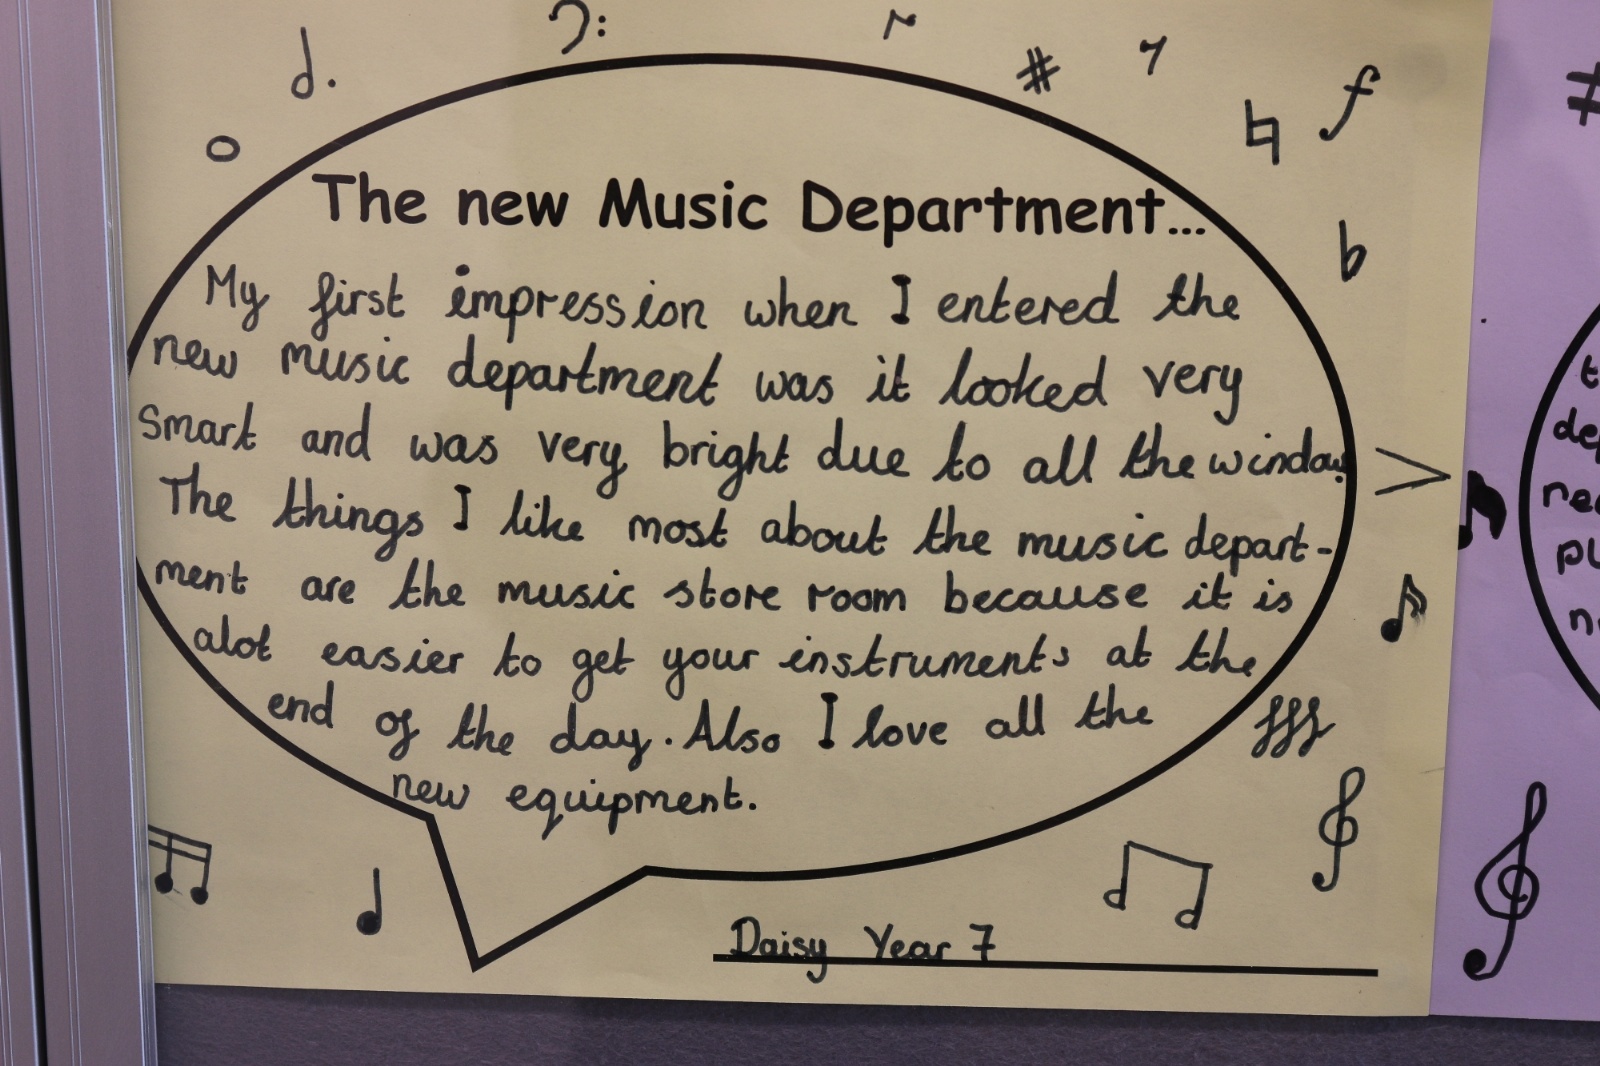 The new Music Department...
My first impression when I entered the
new music department was it looked very
smart and was very bright due to all the window.
The things I like most about the music depart-
ment are the music store room because it is
alot easier to get your instruments at the
end of the day. Also I love all the
new equipment.
Daisy Year 7
f
fff